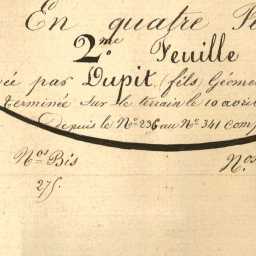 En quatre
2.me Feuille
par Dupit (fils) Géom
Terminée sur le terrain le 10 avril
Depuis le N.o 236 au N.o 341 Comp
N.os Bis
N.os
275.